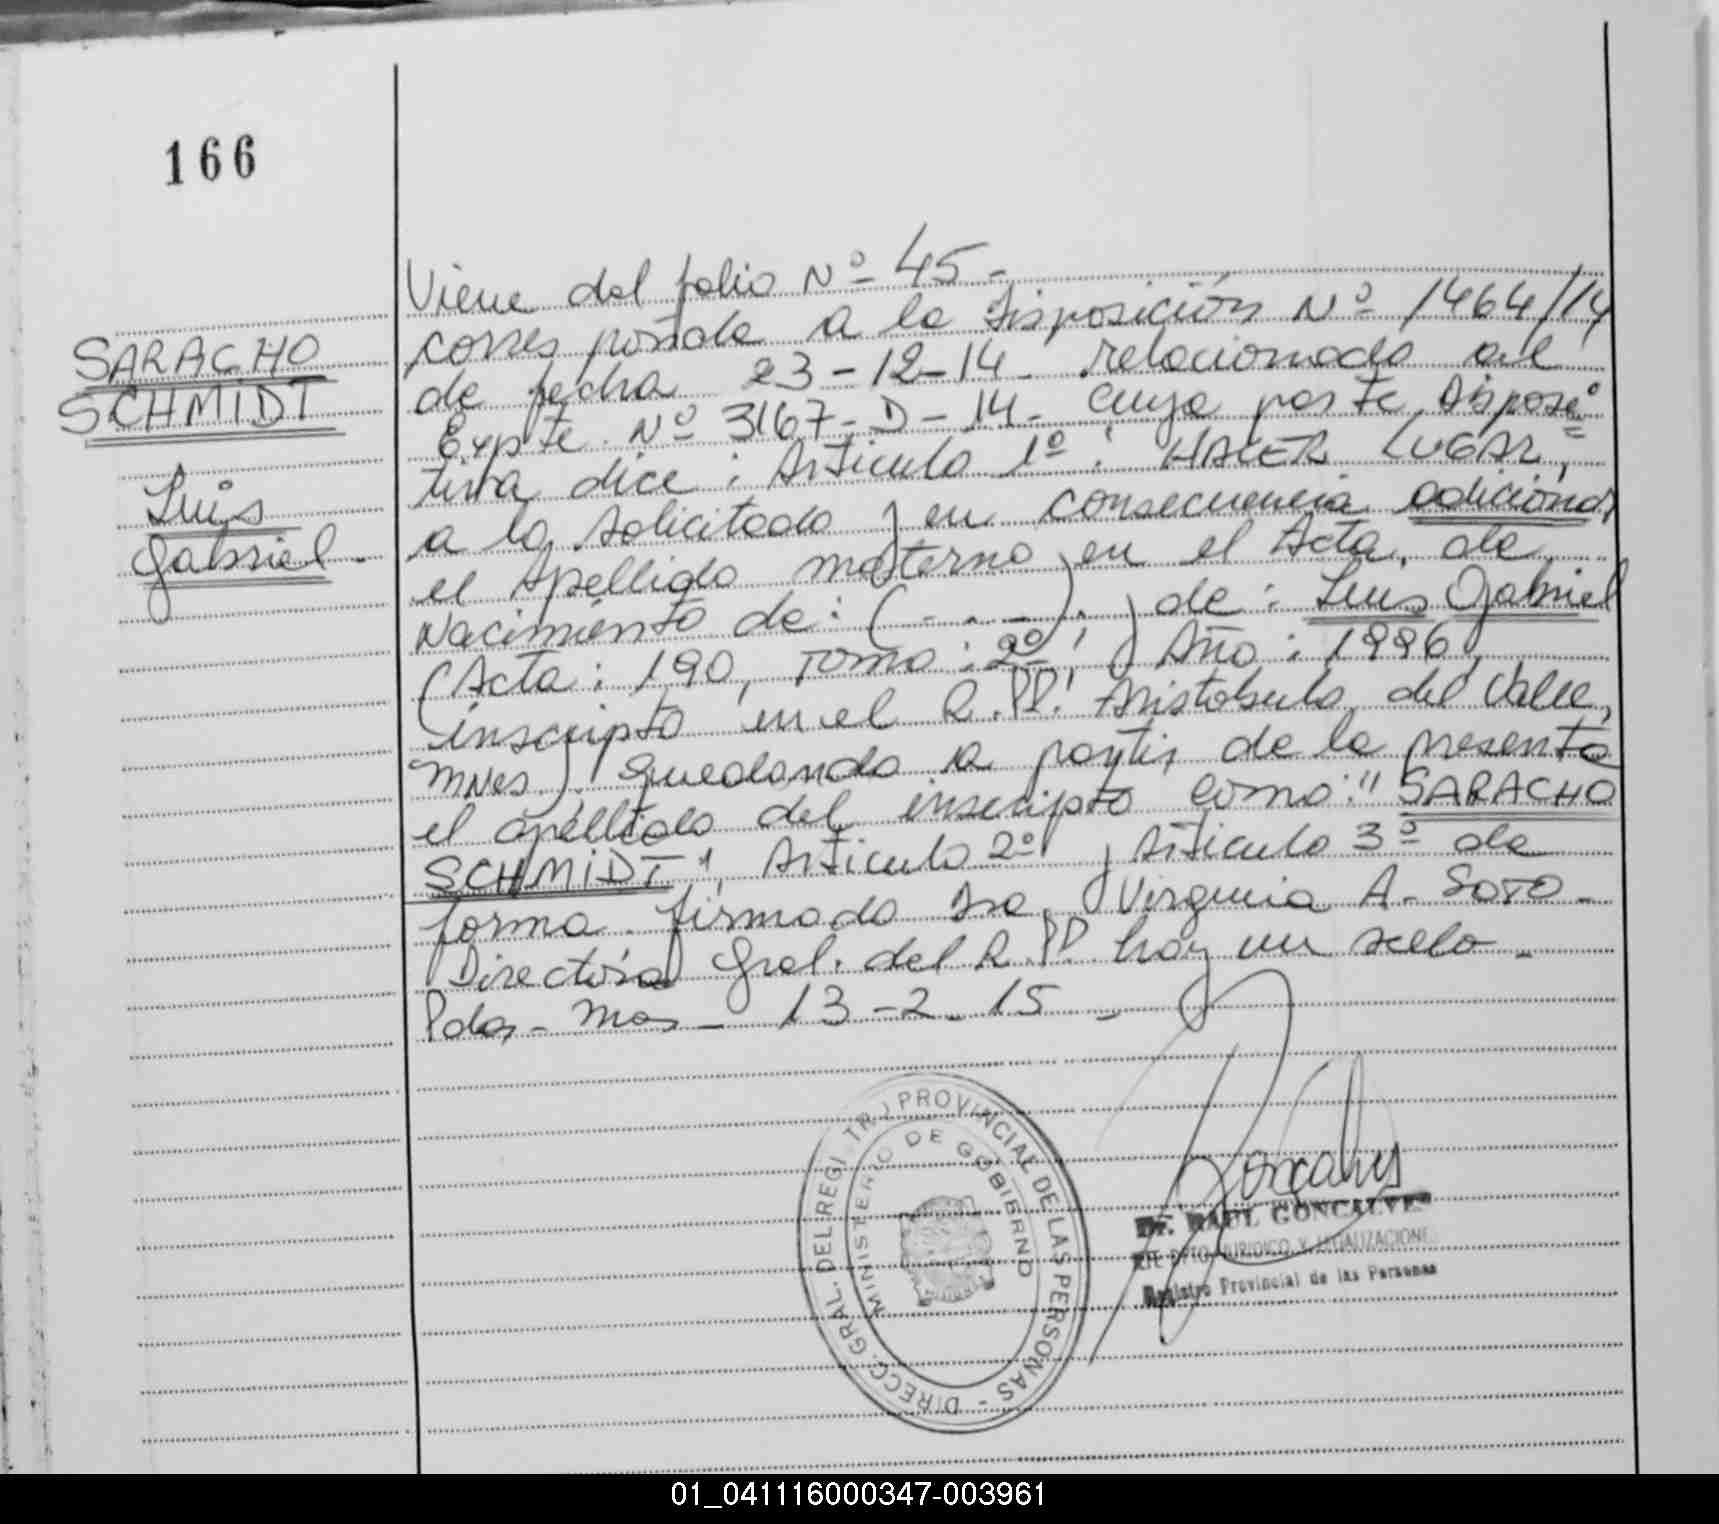 166
SARACHO
SCHMIDT
Luis
Gabriel -
Viene del folio Nº 45 -
corresponde a la Disposición Nº 1464/14
de fecha 23-12-14 - relacionada al
Expte. Nº 3167-D-14 - cuya parte Disposi=
tiva dice: Artículo 1º: HACER LUGAR,
a lo solicitado y en consecuencia adicionar
el Apellido materno en el Acta de
Nacimiento de: (- . - -). y de: Luis Gabriel
(Acta: 190, Tomo: 2º, Año: 1996,
inscripto en el R.PP. Aristóbulo del Valle,
Mnes). quedando a partir de la presente
el apellido del inscripto como: "SARACHO
SCHMIDT", Artículo 2º y Artículo 3º de
forma firmado Dra. Virginia A. SOTO -
Directora Gral. del R.PP. hay un sello -
Pdas - Mns - 13-2-15 -
DIRECC. GRAL. DEL REGISTRO PROVINCIAL DE LAS PERSONAS -
MINISTERIO DE GOBIERNO
Dr. RAUL GONCALVES
DPTO JURIDICO Y LEGALIZACIONES
Registro Provincial de las Personas
01_041116000347-003961